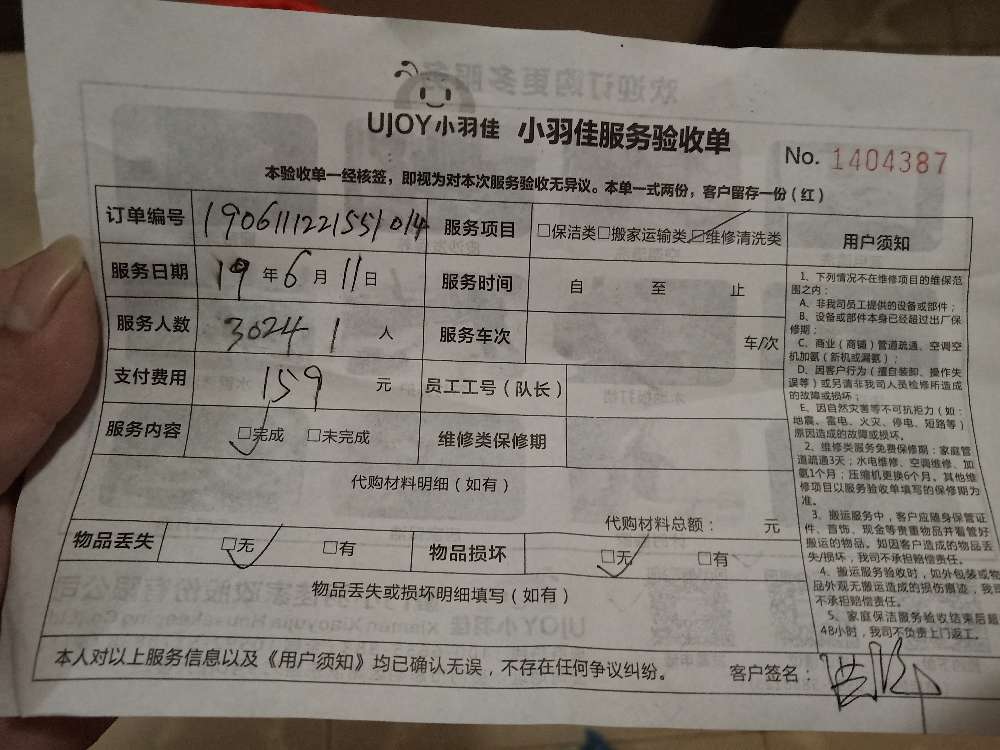 欢迎订购更多服务
UJOY小羽佳 小羽佳服务验收单
No. 1404387
本验收单一经核签，即视为对本次服务验收无异议。本单一式两份，客户留存一份（红）
订单编号 1906111221551014 服务项目 □保洁类□搬家运输类□维修清洗类
服务日期 19年6月11日 服务时间 自 至 止
服务人数 3024 1 人 服务车次 车/次
支付费用 159 元 员工工号（队长）
服务内容 □完成 □未完成 维修类保修期
代购材料明细（如有）
代购材料总额： 元
物品丢失 □无 □有 物品损坏 □无 □有
物品丢失或损坏明细填写（如有）
本人对以上服务信息以及《用户须知》均已确认无误，不存在任何争议纠纷。 客户签名：
用户须知
1、下列情况不在维修项目的维保范
围之内：
A、非我司员工提供的设备或部件；
B、设备或部件本身已经超过出厂保
修期；
C、商业（商铺）管道疏通、空调空
机加氨（新机或漏氨）；
D、因客户行为（擅自装卸、操作失
误等）或另请非我司人员检修所造成
的故障或损坏；
E、因自然灾害等不可抗拒力（如：
地震、雷电、火灾、停电、短路等）
原因造成的故障或损坏。
2、维修类服务免费保修期：家庭管
道疏通3天；水电维修、空调维修、加
氨1个月；压缩机更换6个月。其他维
修项目以服务验收单填写的保修期为
准。
3、搬运服务中，客户应随身保管证
件、首饰、现金等贵重物品并看管好
搬运的物品。如因客户造成的物品丢
失/损坏，我司不承担赔偿责任。
4、搬运服务验收时，如外包装或物
品外观无搬运造成的损伤痕迹，我司
不承担赔偿责任。
5、家庭保洁服务验收结束后超
48小时，我司不负责上门返工。